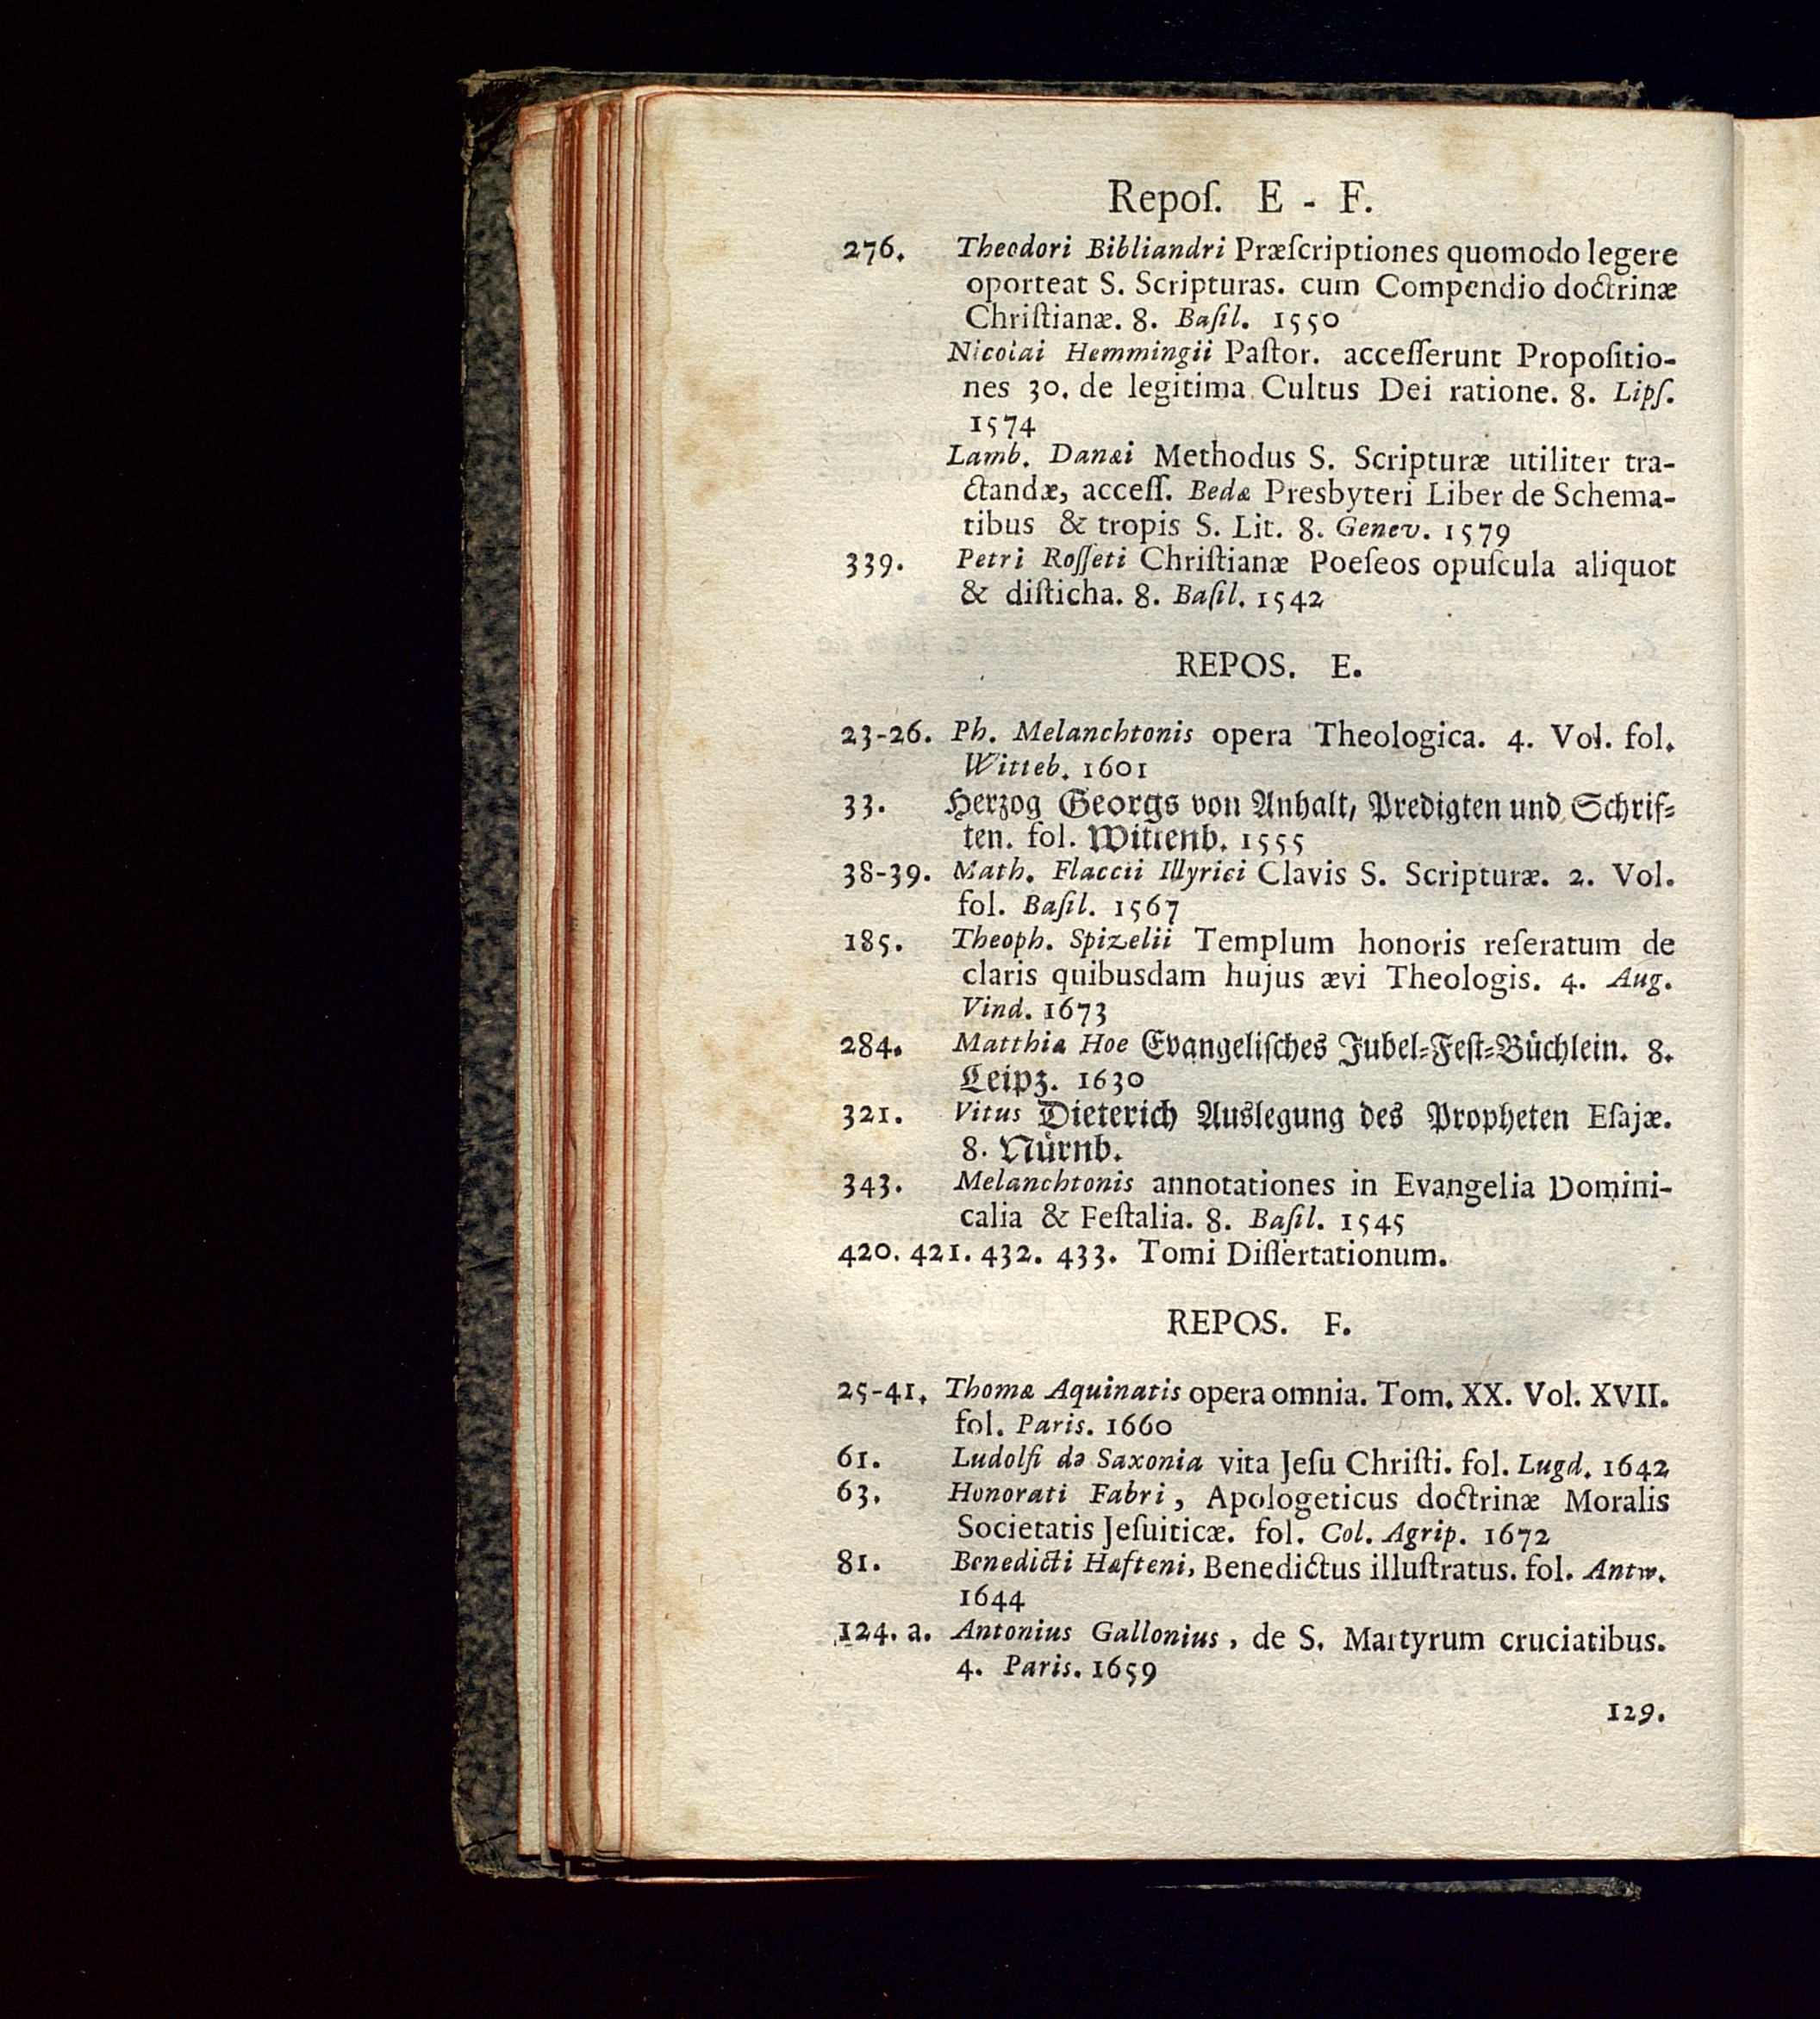 Repoſ. E - F.
276. Theodori Bibliandri Præſcriptiones quomodo legere
oporteat S. Scripturas. cum Compendio doctrinæ
Chriſtianæ. 8. Baſil. 1550
Nicolai Hemmingii Paſtor. acceſſerunt Propoſitio-
nes 30. de legitima Cultus Dei ratione. 8. Lipſ.
1574
Lamb. Danæi Methodus S. Scripturæ utiliter tra-
ctandæ, acceſſ. Bedæ Presbyteri Liber de Schema-
tibus & tropis S. Lit. 8. Genev. 1579
339. Petri Roſſeti Chriſtianæ Poeſeos opuſcula aliquot
& diſticha. 8. Baſil. 1542
REPOS. E.
23-26. Ph. Melanchtonis opera Theologica. 4. Vol. fol.
Witteb. 1601
33. Herzog Georgs von Anhalt, Predigten und Schrif-
ten. fol. Wittenb. 1555
38-39. Math. Flaccii Illyrici Clavis S. Scripturæ. 2. Vol.
fol. Baſil. 1567
185. Theoph. Spizelii Templum honoris reſeratum de
claris quibusdam hujus ævi Theologis. 4. Aug.
Vind. 1673
284. Matthiæ Hoe Evangeliſches Jubel-Feſt-Büchlein. 8.
Leipz. 1630
321. Vitus Dieterich Auslegung des Propheten Eſajæ.
8. Nürnb.
343. Melanchtonis annotationes in Evangelia Domini-
calia & Feſtalia. 8. Baſil. 1545
420. 421. 432. 433. Tomi Diſſertationum.
REPOS. F.
25-41. Thomæ Aquinatis opera omnia. Tom. XX. Vol. XVII.
fol. Paris. 1660
61. Ludolfi de Saxonia vita Jeſu Chriſti. fol. Lugd. 1642
63. Honorati Fabri, Apologeticus doctrinæ Moralis
Societatis Jeſuiticæ. fol. Col. Agrip. 1672
81. Benedicti Hæfteni, Benedictus illuſtratus. fol. Antw.
1644
124. a. Antonius Gallonius, de S. Martyrum cruciatibus.
4. Paris. 1659
129.